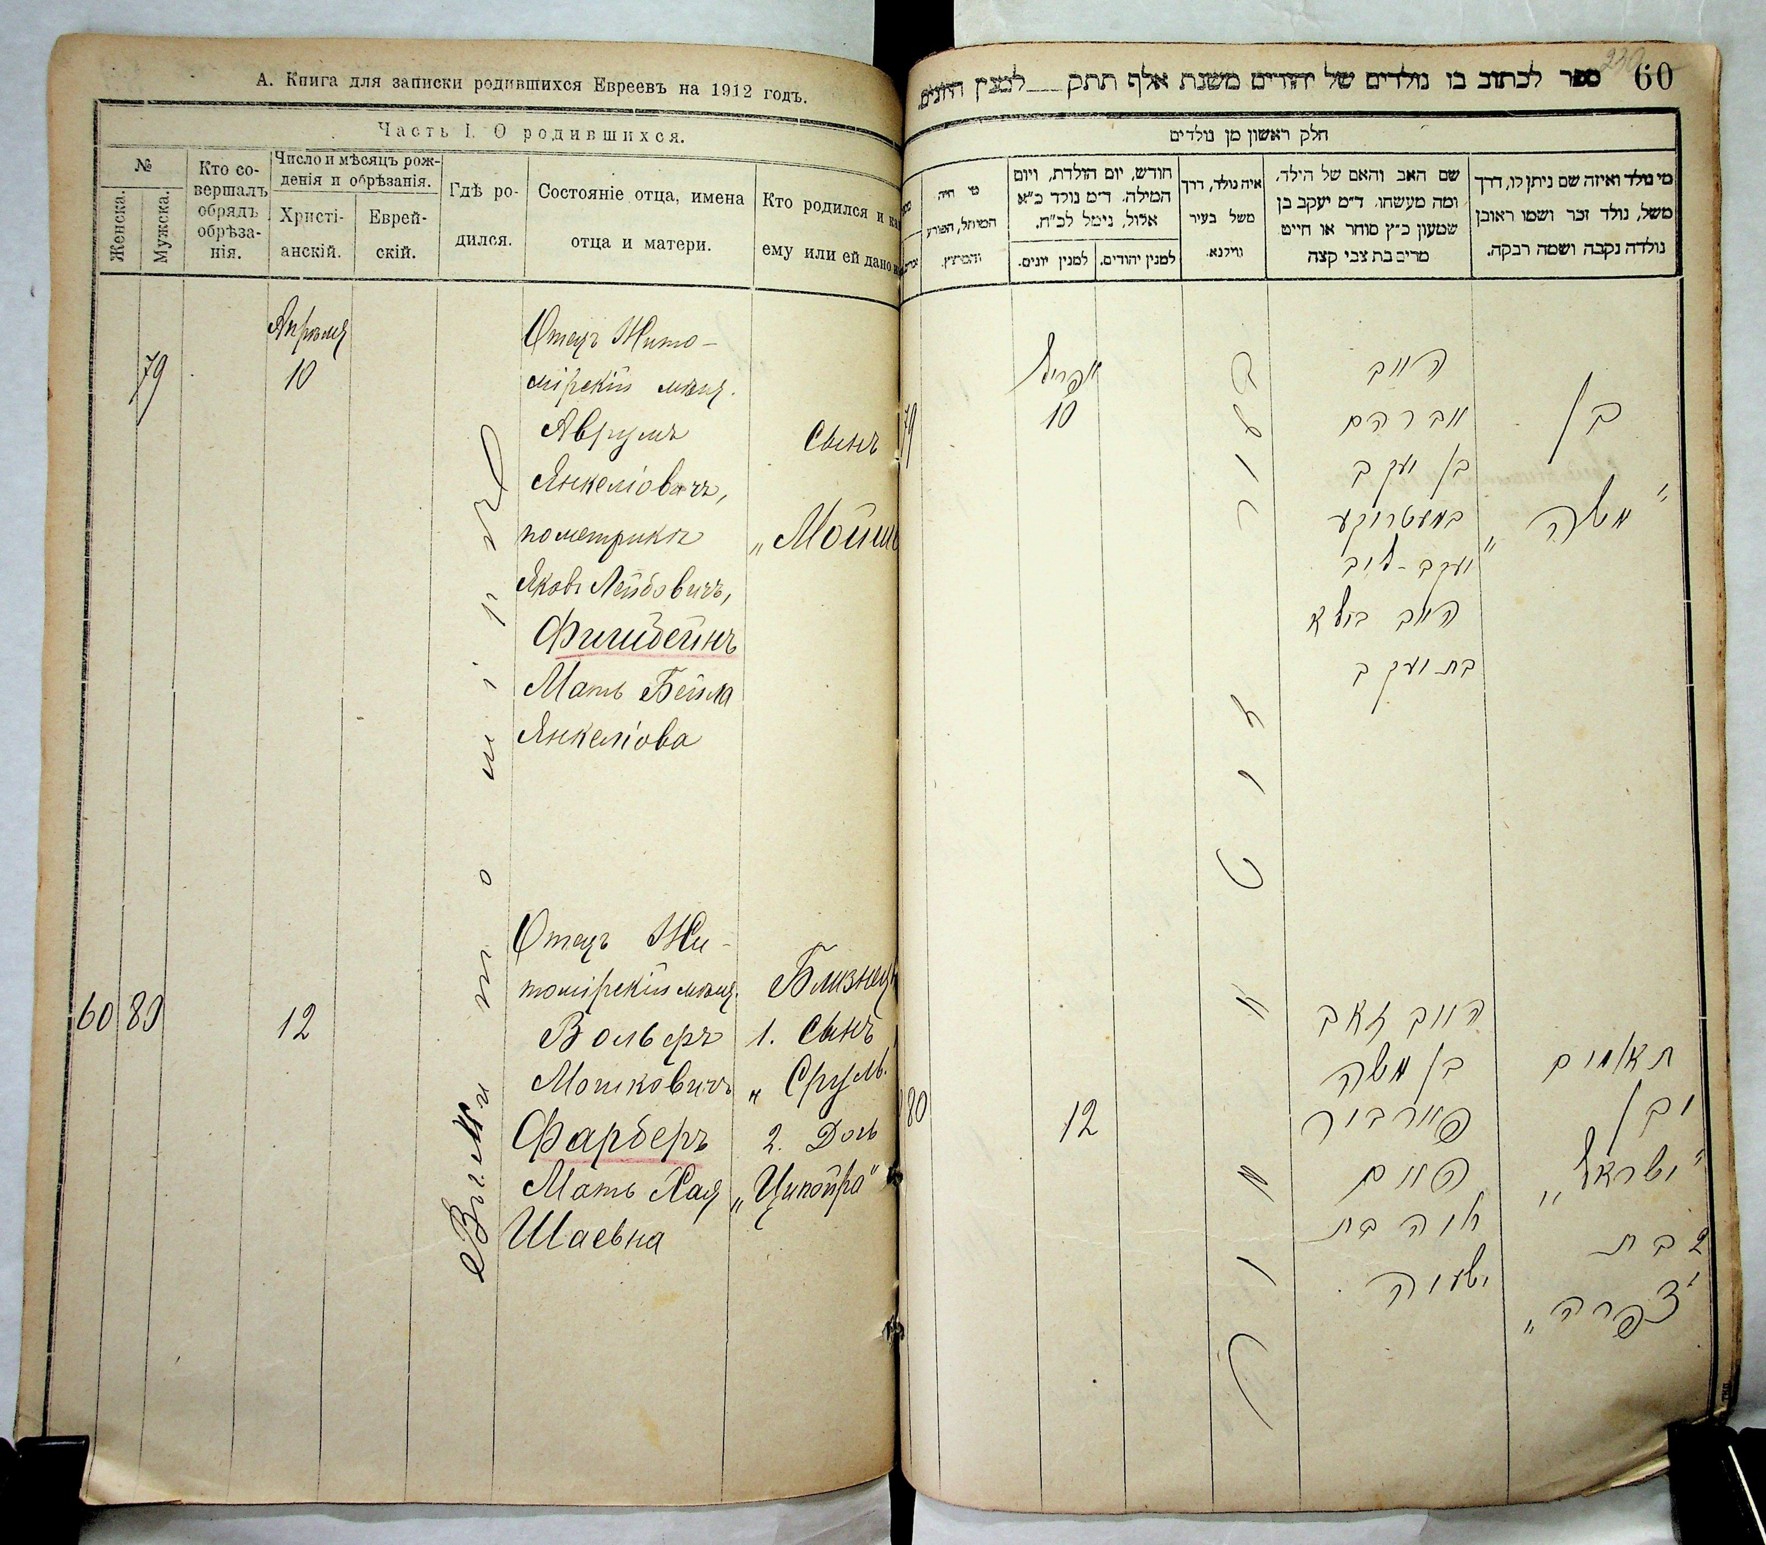 А. Книга для записки родившихся Евреевъ на 1912 годъ.
Часть I. О родившихся.
№
Женска.
Мужска.
Кто со-
вершалъ
обрядъ
обрѣза-
нія.
Число и мѣсяцъ рож-
денія и обрѣзанія.
Христі-
анскій.
Еврей-
скій.
Гдѣ ро-
дился.
Состояніе отца, имена
отца и матери.
Кто родился и
ему или ей дано
79
Апрѣля
10
Отецъ Жито-
мірскій мѣщ.
Аврумъ
Янкеліовичъ,
по метрикѣ
Яковъ Лейбовичъ,
Фишбейнъ
Мать Бейла
Янкеліова
Сынъ
„Мойш
Въ г. Житомірѣ
60 80
12
Отецъ Жи-
томірскій мѣщ.
Вольфъ
Мошковичъ
Фарберъ
Мать Хая
Шаевна
Близнец
1. Сынъ
„Сруль"
2. Дочь
„Ципойра"
ספר לכתוב בו נולדים של יהודים משנת אלף תתק למנין היונים
60
230
חלק ראשון מן נולדים
מי נולד ואיזה שם ניתן לו, דרך
משל, נולד זכר ושמו ראובן
נולדה נקבה ושמה רבקה.
שם האב והאם של הילד,
ומה מעשהו. ד״מ יעקב בן
שמעון כ״ץ סוחר או חייט
מרים בת צבי קצה
איה נולד, דרך
משל בעיר
ווילנא.
חודש, יום הולדת, ויום
המילה. ד״מ נולד כ״א
אלול, נימל לכ״ח.
למנין יהודים.
למנין יונים.
מי היה
המוהל, הפורע
והמוצץ.
79
אפריל
10
האב
אברהם
בן יעקב
במעטריקע
יעקב-ליב
האם ביילא
בת יעקב
בן
"משה"
בעיר זיטאמיר
80
12
האב זאב
בן משה
פארבער
האם
חיה בת
ישעיה
תאומים
1 בן
"ישראל"
2 בת
"צפרה"